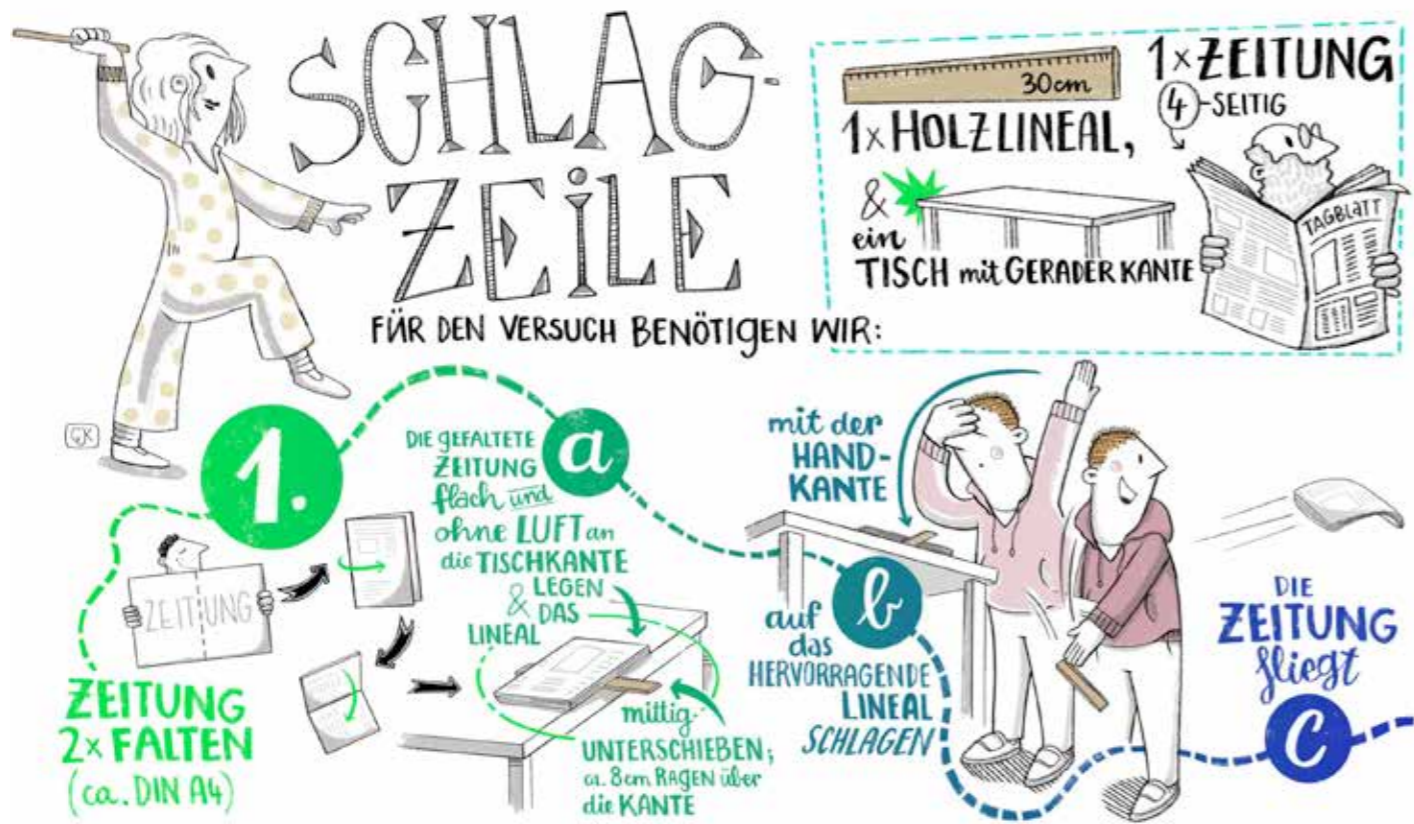 SCHLAG-
ZEILE
FÜR DEN VERSUCH BENÖTIGEN WIR:
30cm
1x HOLZLINEAL,
1x ZEITUNG
4-SEITIG
TAGBLATT
&
ein
TISCH mit GERADER KANTE
GK
1.
ZEITUNG
ZEITUNG
2x FALTEN
(ca. DIN A4)
a
DIE GEFALTETE
ZEITUNG
flach und
ohne LUFT an
die TISCHKANTE
LEGEN
& DAS
LINEAL
mittig
UNTERSCHIEBEN;
ca. 8cm RAGEN über
die KANTE
mit der
HAND-
KANTE
b
auf
das
HERVORRAGENDE
LINEAL
SCHLAGEN
DIE
ZEITUNG
fliegt
C